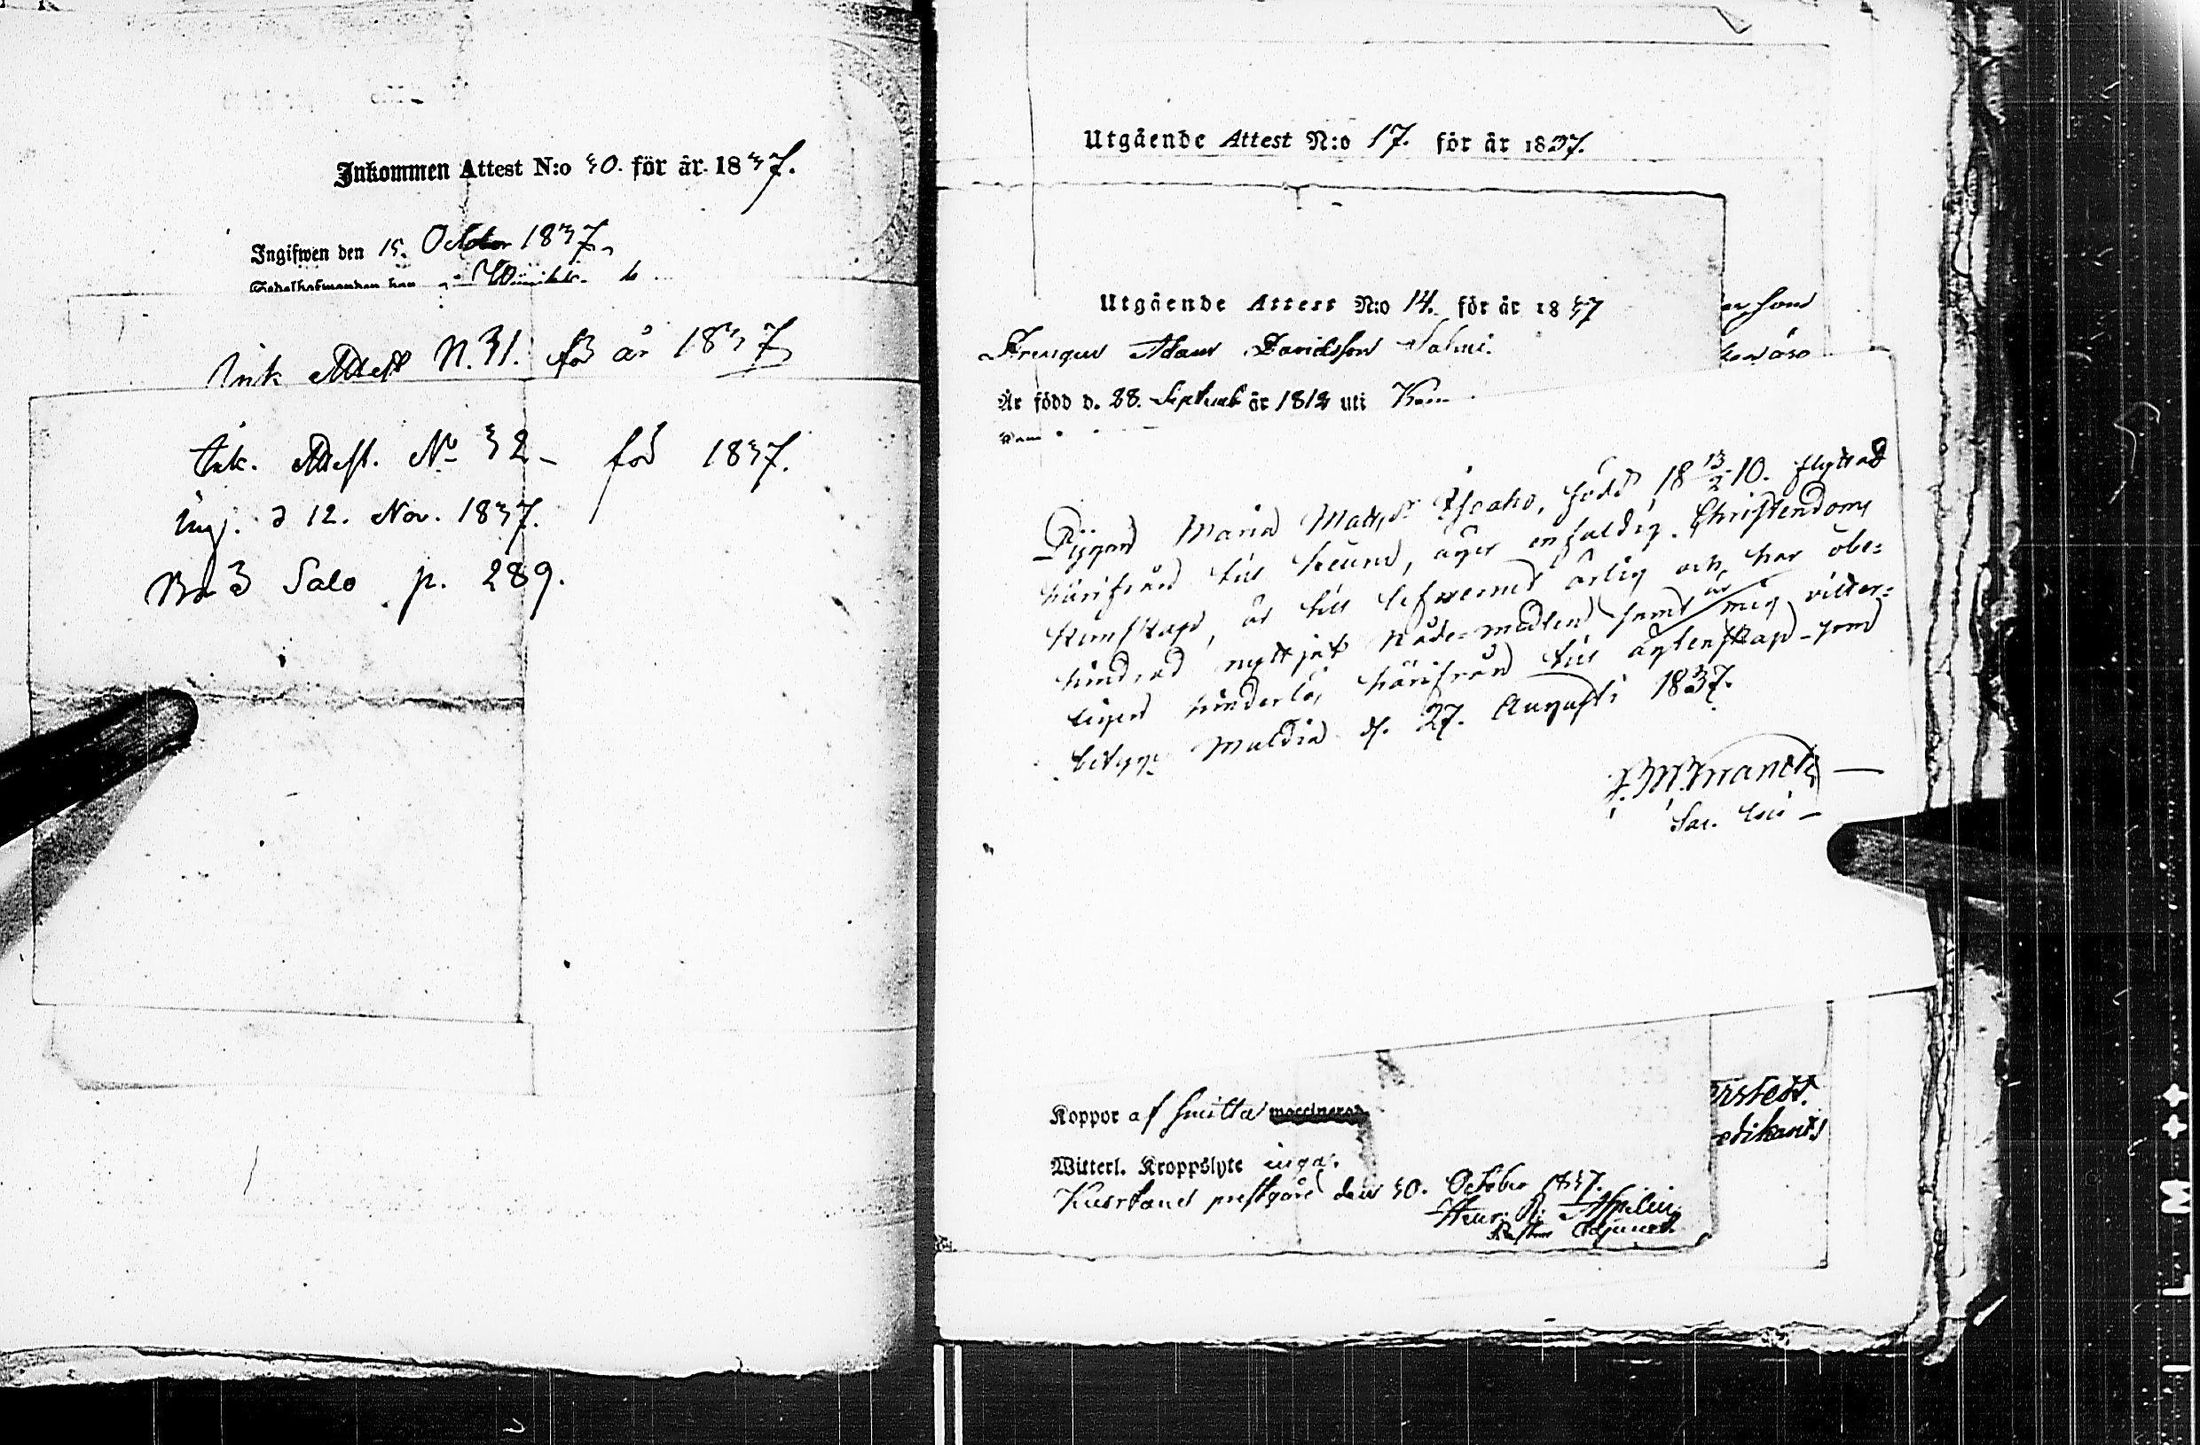 Inkommen Attest N:o 30. för år 1837.
Ingifwen den 15. October 1837.
Ink Attest N. 31. för år 1837
Ink. Attest. No 32 – för 1837.
ing. d 12. Nov. 1837.
No 3 Salo p. 289.
Utgående Attest N:o 17. för år 1837.
Utgående Attest N:o 14. för år 1837
Drengen Adam Davidsson Salmi.
Är född d. 28. Septemb år 1812 uti
Pigan Maria Matts dr, född 18 13/2 10. flyttad
härifrån till, äger enfaldig Christendoms
kunskap, är till lefwerne ärlig och har obe=
hindrad nyttjat Nåde=medlen samt är mig vitter=
ligen hinderlös härifrån till ägtenskap – som
betygar Muldia d. 27. Augusti 1837.
Franck
Sac.
Koppor af smitta waccinerad
Witterl. Kroppslyte inga.
Kuortane prestgård den 30. October 1837.
Adjunct